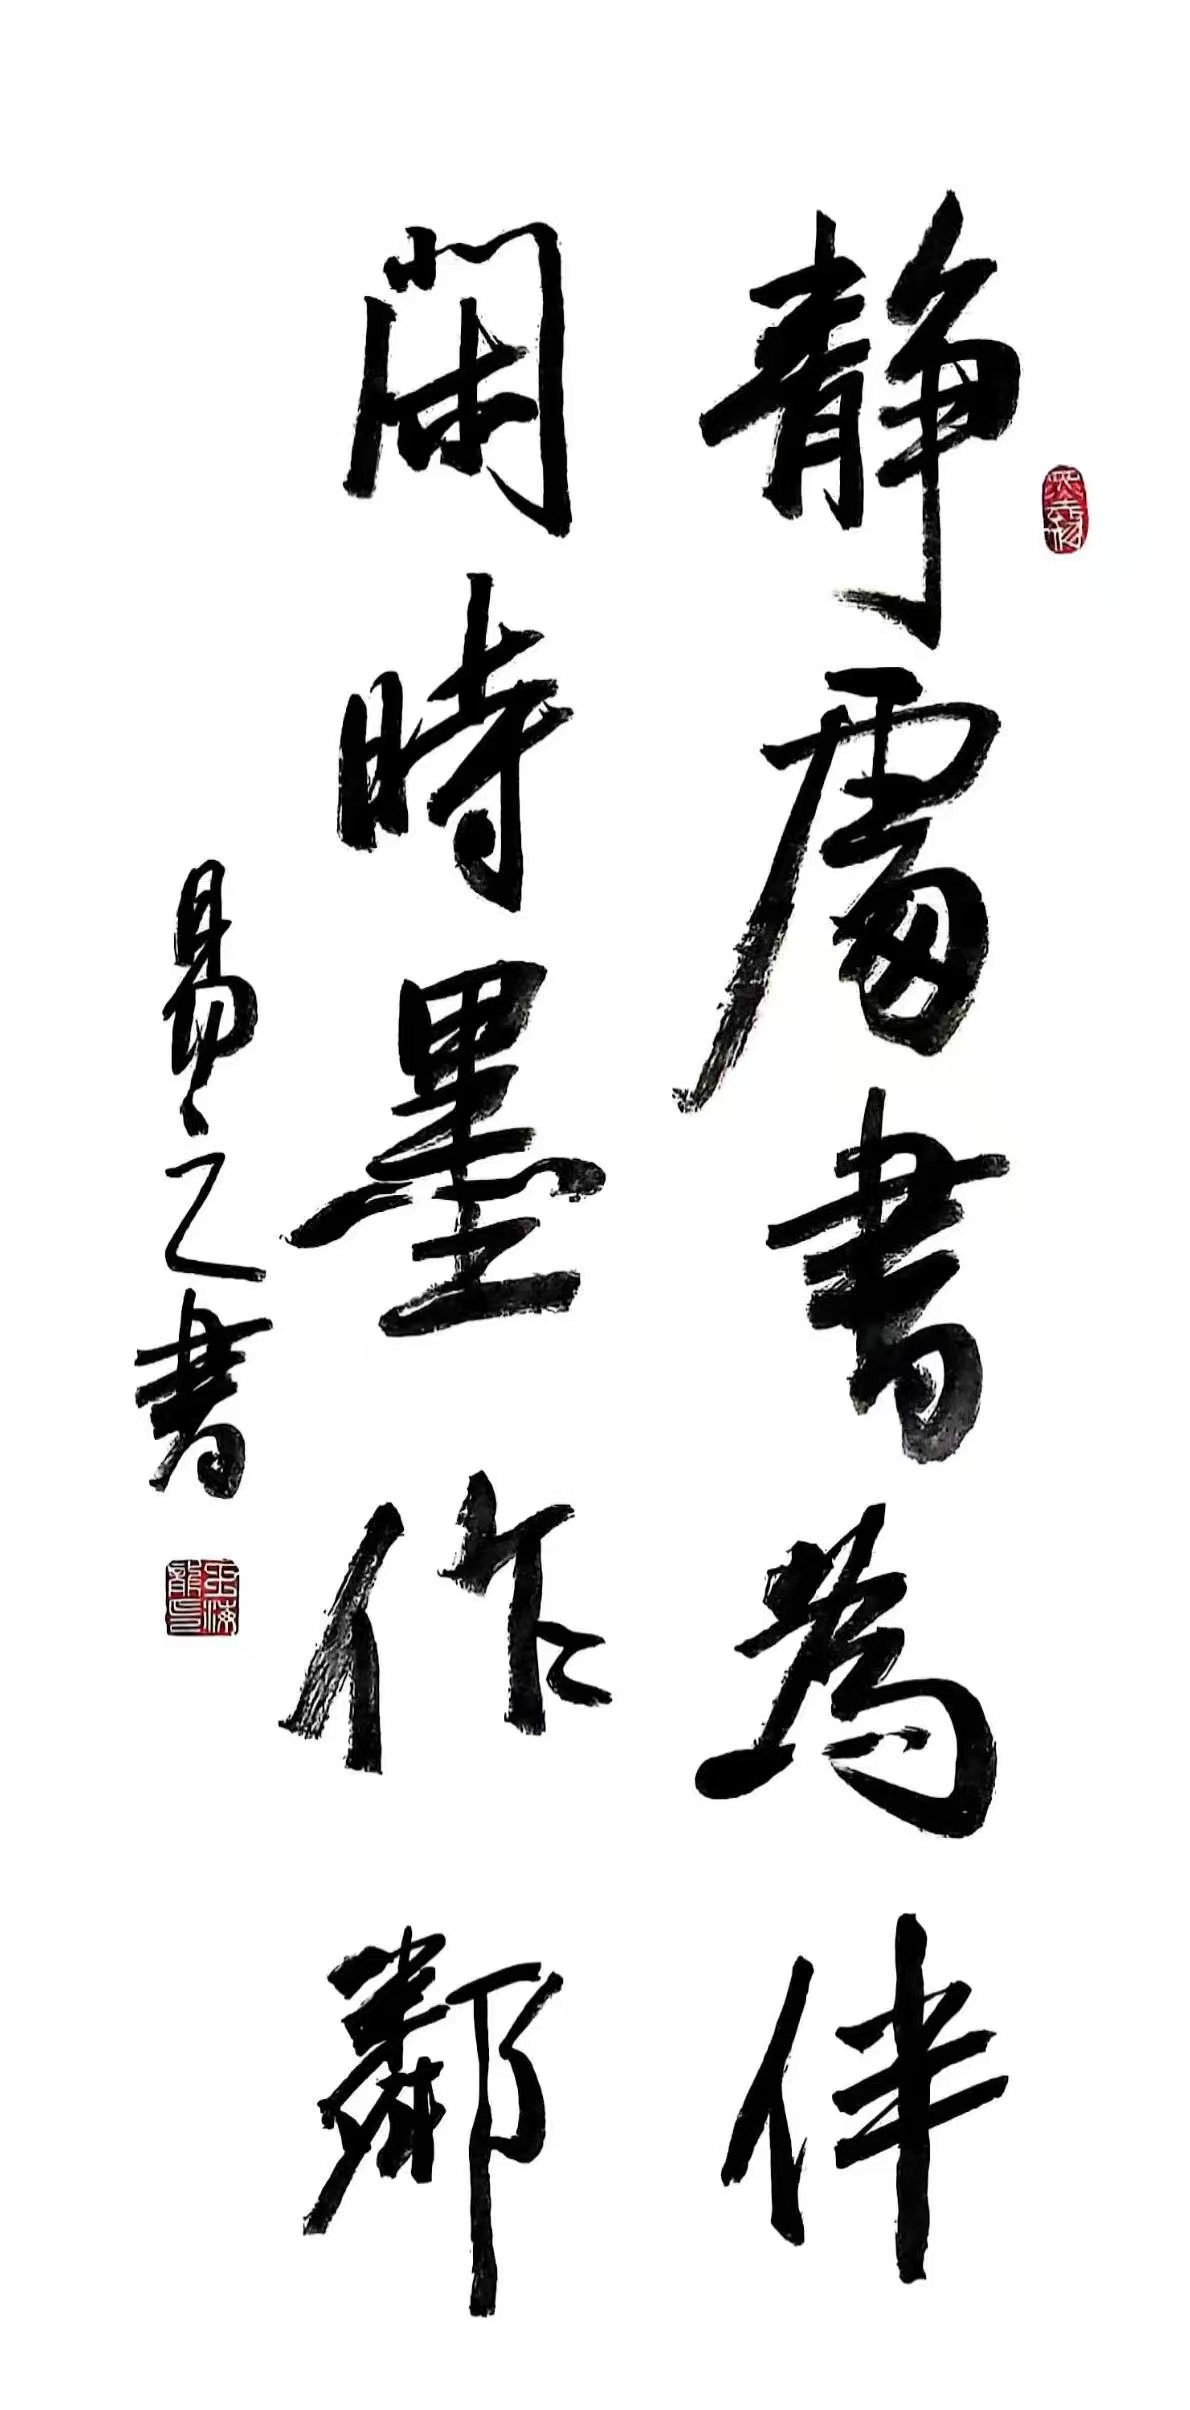 静處書為伴
閑時墨作鄰
易之書